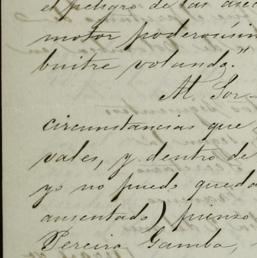 el peligro de las asc
motor poderosísim
buitre volando."
Al Sor
circunstancias que
vales, y dentro de
yo no puedo queda
ausentado) pienso
Pereira Gamba,